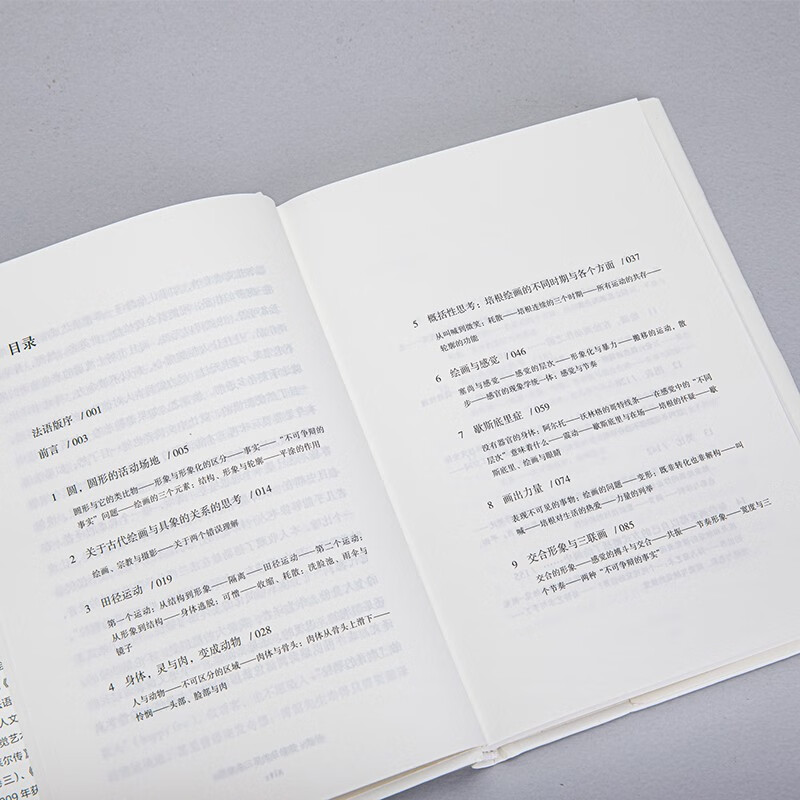 目录
法语版序 / 001
前言 / 003
1 圆，圆形的活动场地 / 005
圆形与它的类比物——形象与形象化的区分——事实——“不可争辩的
事实”问题——绘画的三个元素：结构、形象与轮廓——平涂的作用
2 关于古代绘画与具象的关系的思考 / 014
绘画、宗教与摄影——关于两个错误理解
3 田径运动 / 019
第一个运动：从结构到形象——隔离——田径运动——第二个运动：
从形象到结构——身体逃脱：可憎——收缩、耗散：洗脸池、雨伞与
镜子
4 身体，灵与肉，变成动物 / 028
人与动物——不可区分的区域——肉体与骨头：肉体从骨头上滑下——
怜悯——头部、脸部与肉
5 概括性思考：培根绘画的不同时期与各个方面 / 037
从叫喊到微笑：耗散——培根连续的三个时期——所有运动的共存——
轮廓的功能
6 绘画与感觉 / 046
塞尚与感觉——感觉的层次——形象化与暴力——搬移的运动，散
步——感官的现象学统一体：感觉与节奏
7 歇斯底里症 / 059
没有器官的身体：阿尔托——沃林格的哥特线条——在感觉中的“不同
层次”意味着什么——震动——歇斯底里与在场——培根的怀疑——歇
斯底里、绘画与眼睛
8 画出力量 / 074
表现不可见的事物：绘画的问题——变形：既非转化也非解构——叫
喊——培根对生活的热爱——力量的列举
9 交合形象与三联画 / 085
交合的形象——感觉的搏斗与交合——共振——节奏形象——宽度与三
个节奏——两种“不可争辩的事实”
法语
人文
觉艺术
莱尔传》
三）、《
009年获